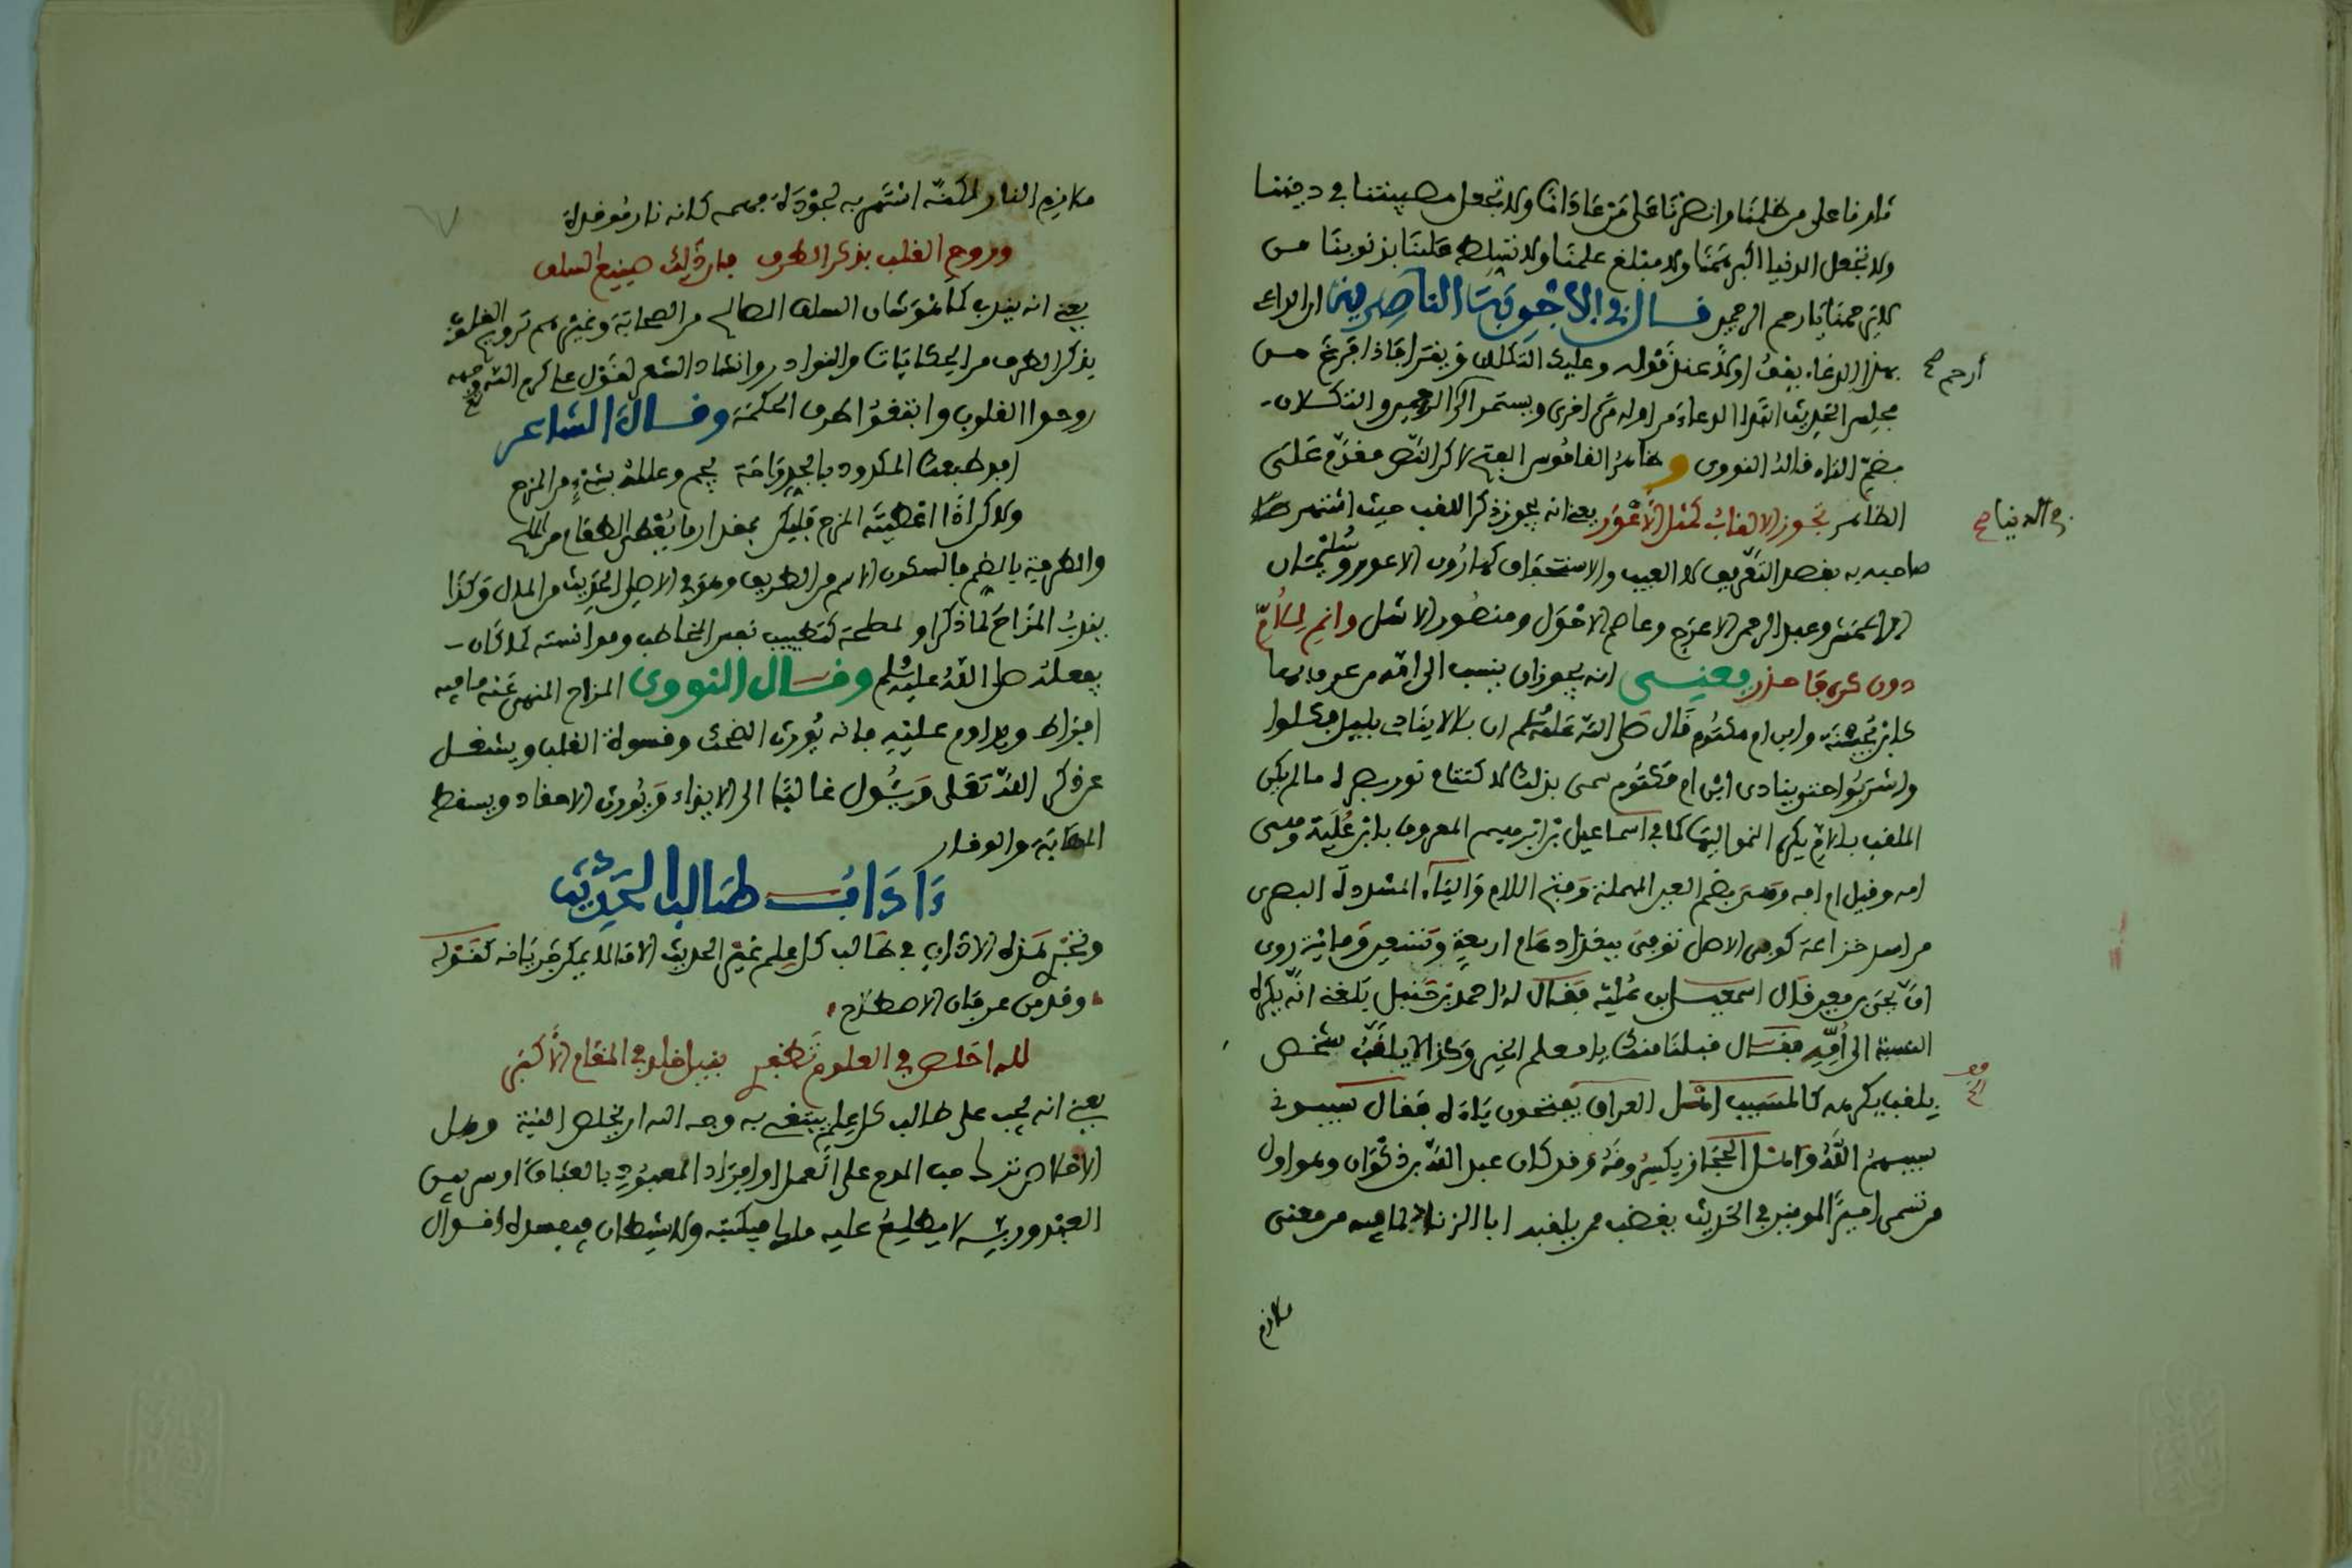 ثارنا على من ظلمنا وانصرنا على من عادانا ولا تجعل مصيبتنا في ديننا
ولا تجعل الدنيا اكبر همنا ولا مبلغ علمنا ولا تسلط علينا بذنوبنا من
لا يرحمنا يا ارحم الرحمين قال في الاجوبة الناصرية ان الداعي
بهذا الدعاء يقف اولا عند قوله وعليك التكلان ويقرا فاذا فرغ من
مجلس الحديث اتلا الدعاء من اوله مرة اخرى ويستمر الى الرحمين والتكلان
بضم التاء قاله النووي و القاموس لاكن النص مقدم على
الظاهر تجوز الالقاب كمثل الاعور يعني انه يجوز ذكر اللقب حيث اشتهر
صاحبه به بقصد التعريف لا العيب والاستحقاق كهارون الاعور وسليمان
الاعمش وعبد الرحمن الاعرج وعاصم الاحول ومنصور الاشل وانم للام
دون كره معنى انه يجوز ان ينسب الى امه من عرف بها
كابن بحينة وابن ام مكتوم قال صلى الله عليه وسلم ان بلالا ينادي بليل فكلوا
واشربوا حتى ينادي ابن ام مكتوم سمى بذلك لاكتتام نور بصره ما لم يكن
الملقب بالام يكره النمو اليها كما في اسماعيل بن ابراهيم المعروف بابن علية وهي
امه وقيل ام امه وهي بضم العين المهملة وفتح اللام والياء المشددة البصري
من اسد خزاعة كوفي الاصل توفي ببغداد عام اربعة وتسعين ومائة روى
ان يحيى بن معين قال اسمعيل ابن علية فقال له احمد بن حنبل بلغني انه يكره
النسبة الى امه فقال قبلنا منك يا معلم الخير وكذا لا يلقب شخص
بلقب يكرهه كالمسيب اهل العراق يفتحون ياءه فقال سيبوني
سيبهم الله واهل الحجاز يكسرونه وقد كان عبد الله بن ذكوان وهو اول
من تسمى امير المومنين في الحديث يغضب ممن يلقبه ابا الزناد لما فيه من معنى
ملازم
ارحم صح
في الدنيا صح
ملازم النار لكنه اشتهر به لجودة فهمه كانه نار موقدة
وروح القلب بذكر الطرف فان ذلك صنيع السلف
يعني انه يندب كما هو شان السلف الصالح من الصحابة وغيرهم ترويح القلوب
بذكر الطرف من الحكايات والنوادر وانشاد الشعر لقول على كرم الله وجهه
روحوا القلوب وابتغوا طرف الحكمة وقال الشاعر
افد طبعك المكدود بالجد راحة يجم وعلله بشيء من المزح
ولاكن اذا اعطيته المزح فليكن بمقدار ما يعطى الطعام من الملح
والطرفة بالضم فالسكون الاسم من الطريف وهو في الاصل الحديث من المال وكذا
يندب المزاح لما ذكر او لمصلحة كتطييب نفس المخاطب وموانسته كما كان
يفعله صلى الله عليه وسلم وقال النووي المزاح المنهي عنه ما فيه
افراط ويداوم عليه فانه يورث الضحك وقسوة القلب ويشغل
عن ذكر الله تعلى ويئول غالبا الى الايذاء ويورث الاحقاد ويسقط
المهابة والوقار
ءاداب طالب الحديث
وتجري هذه الاداب في طالب كل علم غير الحديث الا ما لا يمكن جريانه كقوله
وقدمن عرفان الاصطلاح
لله اخلص في العلوم تظفر بنيل خلد في المقام الاكبر
يعني انه يجب على طالب كل علم يبتغى به وجه الله ان يخلص النية وهل
الاخلاص ترك حب المدح على العمل او افراد المعبود بالعبادة او سر بين
العبد وربه لا يطلع عليه ملك فيكتبه ولا شيطان فيفسده اقوال